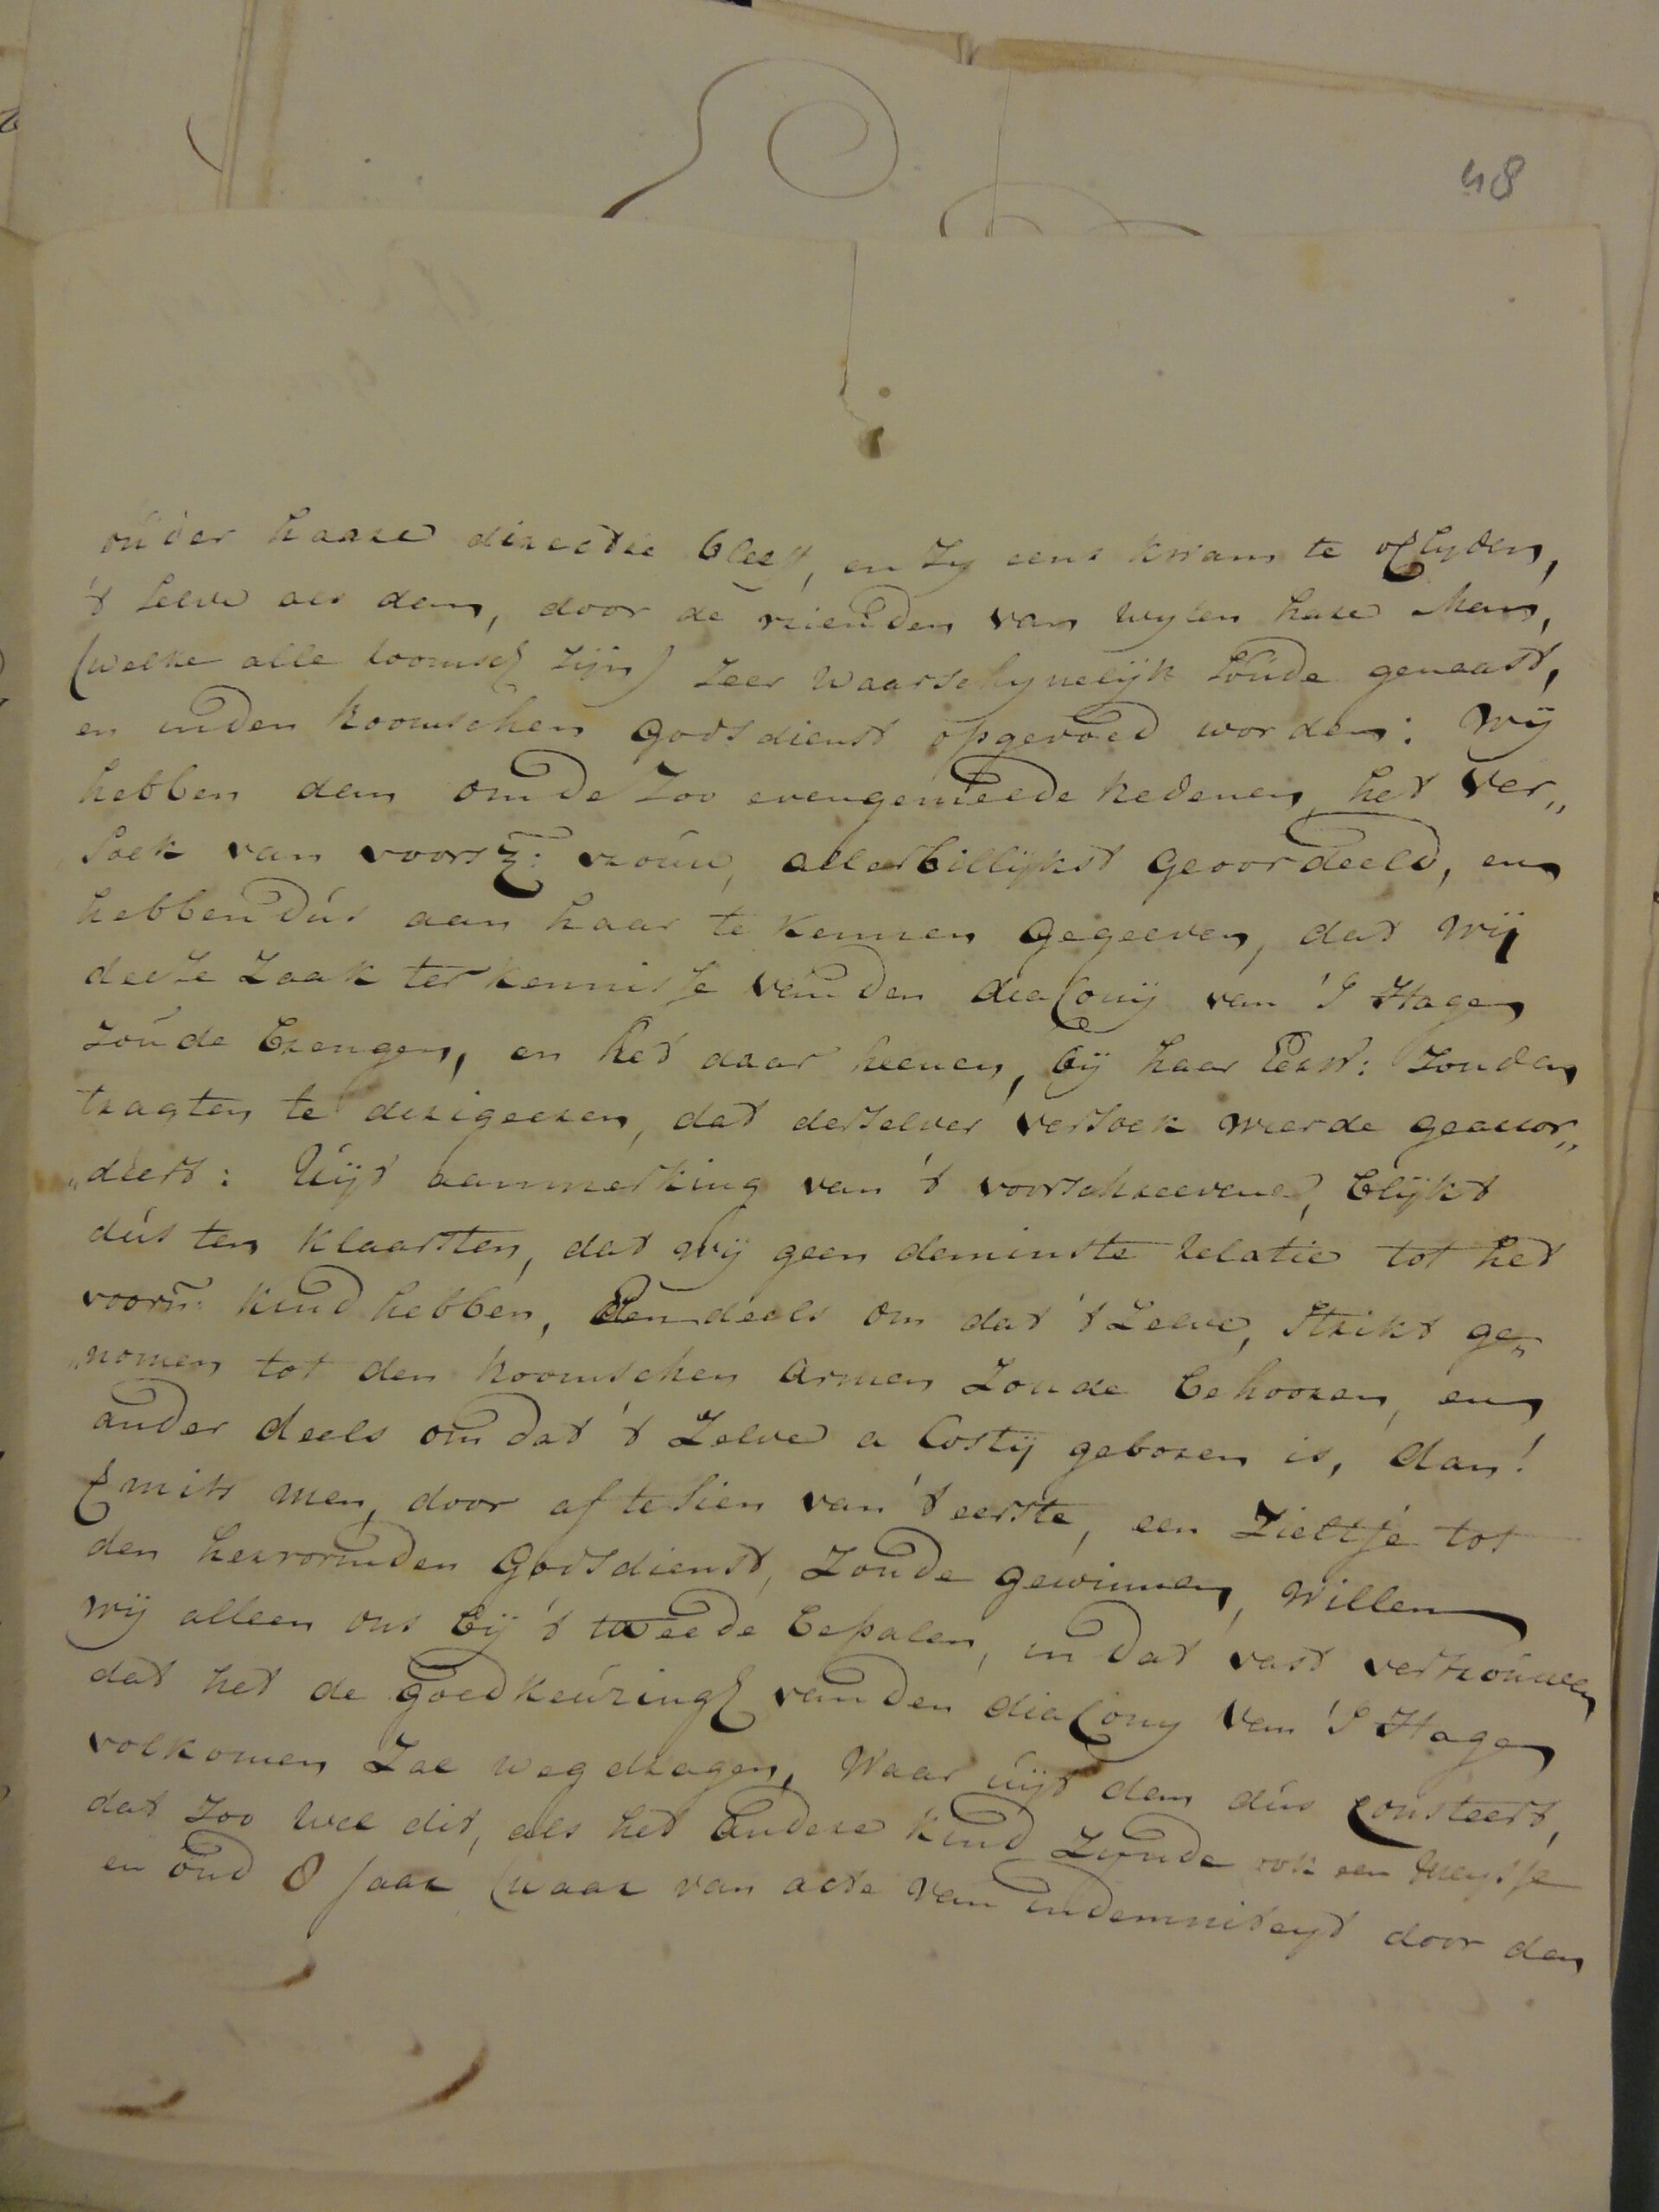 48
onder haare directie bleeff, en zy eens kwam te oflyden,
't selve als dan, door de vrienden van wylen hare Man,
(welke alle roomsch zijn) zeer waarschynelijk soude genaast,
en inden Roomschen godsdienst opgevoed worden: Wij
hebben dan om de zoo evengemeede Redenen, het ver„
soek van voorsz: vrouw, allerbillijkst geoordeeld, en
hebben dus aan haar te kennen gegeeven, dat wij
deeze zaak ter kennisse van den diaconij van 'S Hage
zoude brengen, en het daar heenen, bij haar Eerw: zouden
tragten te dirigeeren, dat derselver versoek wierde geaccor„
„deert: Uijt aanmerking van 't voorschreevene, blijkt
dus ten klaarsten, dat wij geen deminste relatie tot het
voorn: kind hebben, Eendeels om dat 't zelve, strikt ge„
„nomen tot den Roomschen armen zoude behooren, en
ander deels om dat 't zelve a Costij geboren is, dan!
mits men, door af te sien van 't eerste, een zieltje tot
den hervormden Godsdienst, zoude gewinnen, willen
wij alleen ons bij 't tweede bepalen, in dat vast vertrouwen
dat het de goedkeuring van den diacony van 'S Hage
volkomen zal wegdragen, Waar uijt dan dus consteert,
dat zoo wel dit, als het andere kind zynde ook een meysje
en oud 8 Jaar (waar van acte van indemniteyt door den